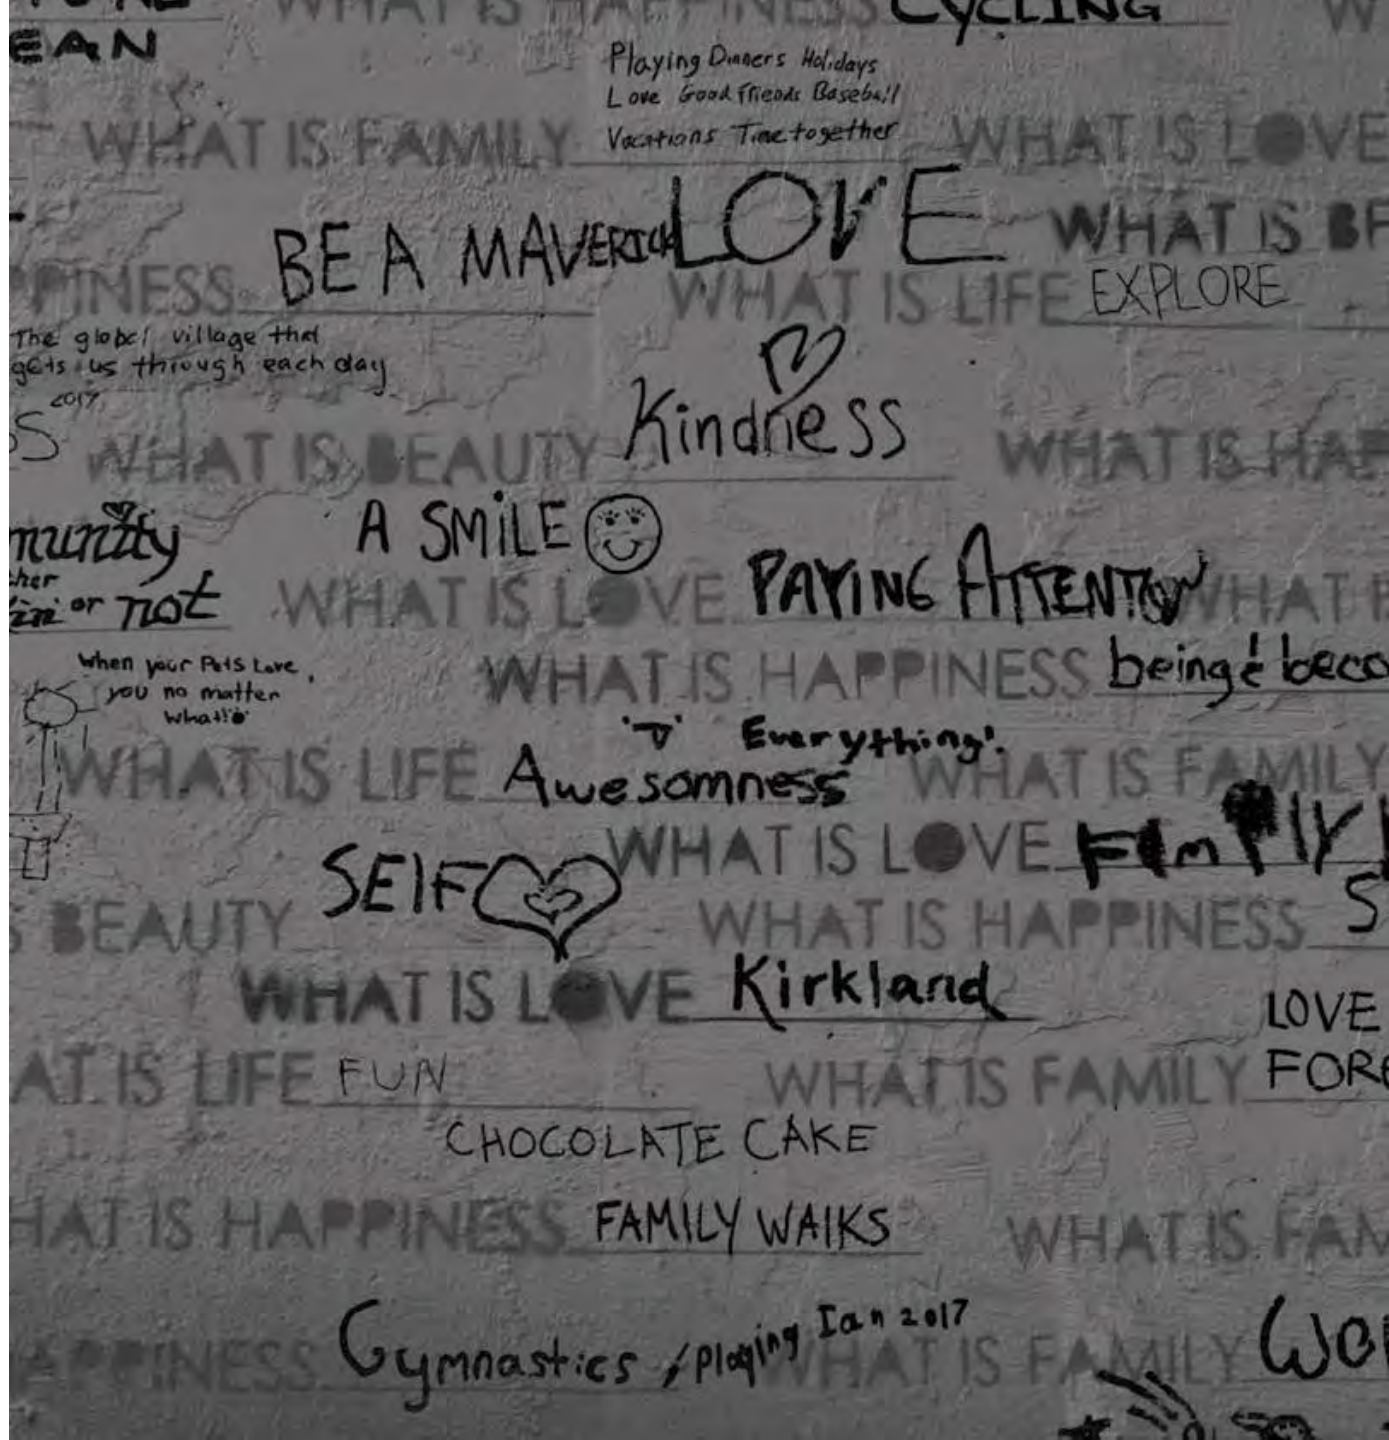 WHAT IS HAPPINESS CYCLING
EAN
Playing Dinners Holidays
Love Good Friends Baseball
WHAT IS FAMILY Vacations Time together WHAT IS LOVE
BE A MAVERICK LOVE WHAT IS BE
PPINESS WHAT IS LIFE EXPLORE
The global village that
gets us through each day
2017
WHAT IS BEAUTY Kindness WHAT IS HAP
munity A SMILE
or not WHAT IS LOVE PAYING ATTENTION WHAT IS
When your Pets Love
you no matter
what!
WHAT IS HAPPINESS being & beco
Everything!
WHAT IS LIFE Awesomness WHAT IS FAMILY
WHAT IS LOVE FAmily
SElF
S BEAUTY WHAT IS HAPPINESS S
WHAT IS LOVE Kirkland
LOVE
AT IS LIFE FUN WHAT IS FAMILY FORE
CHOCOLATE CAKE
HAT IS HAPPINESS FAMILY WAlKS WHAT IS FAM
APPINESS Gymnastics / playing Ian 2017 WHAT IS FAMILY Wo